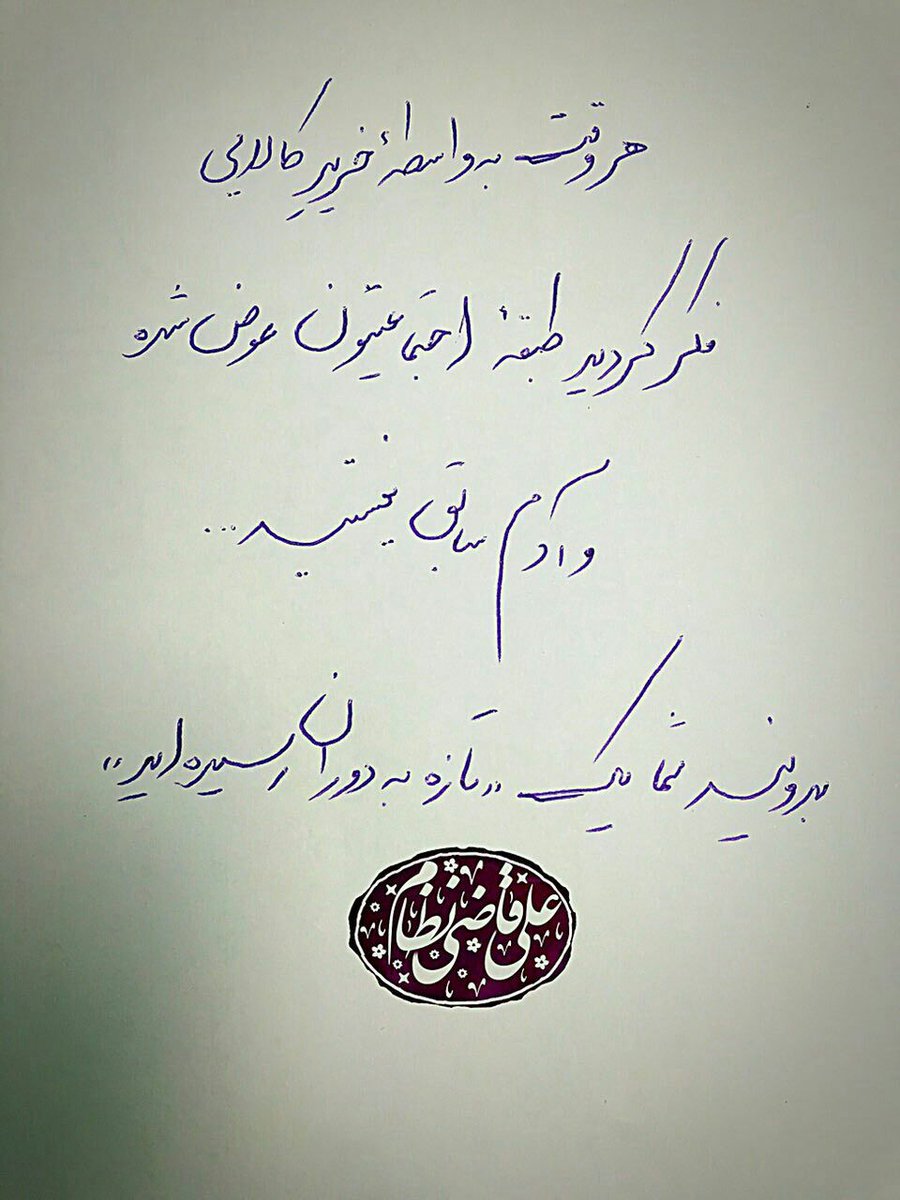 هر وقت به واسطهٔ خریدِ کالایی
فکر کردید طبقهٔ اجتماعیتون عوض شده
و آدم سابق نیستید...
بدونید شما یک «تازه به دوران رسیده‌اید»
علی قاضی نظام